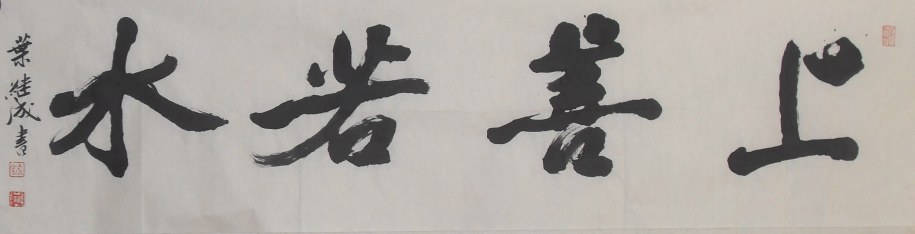 上善若水
葉繼成書